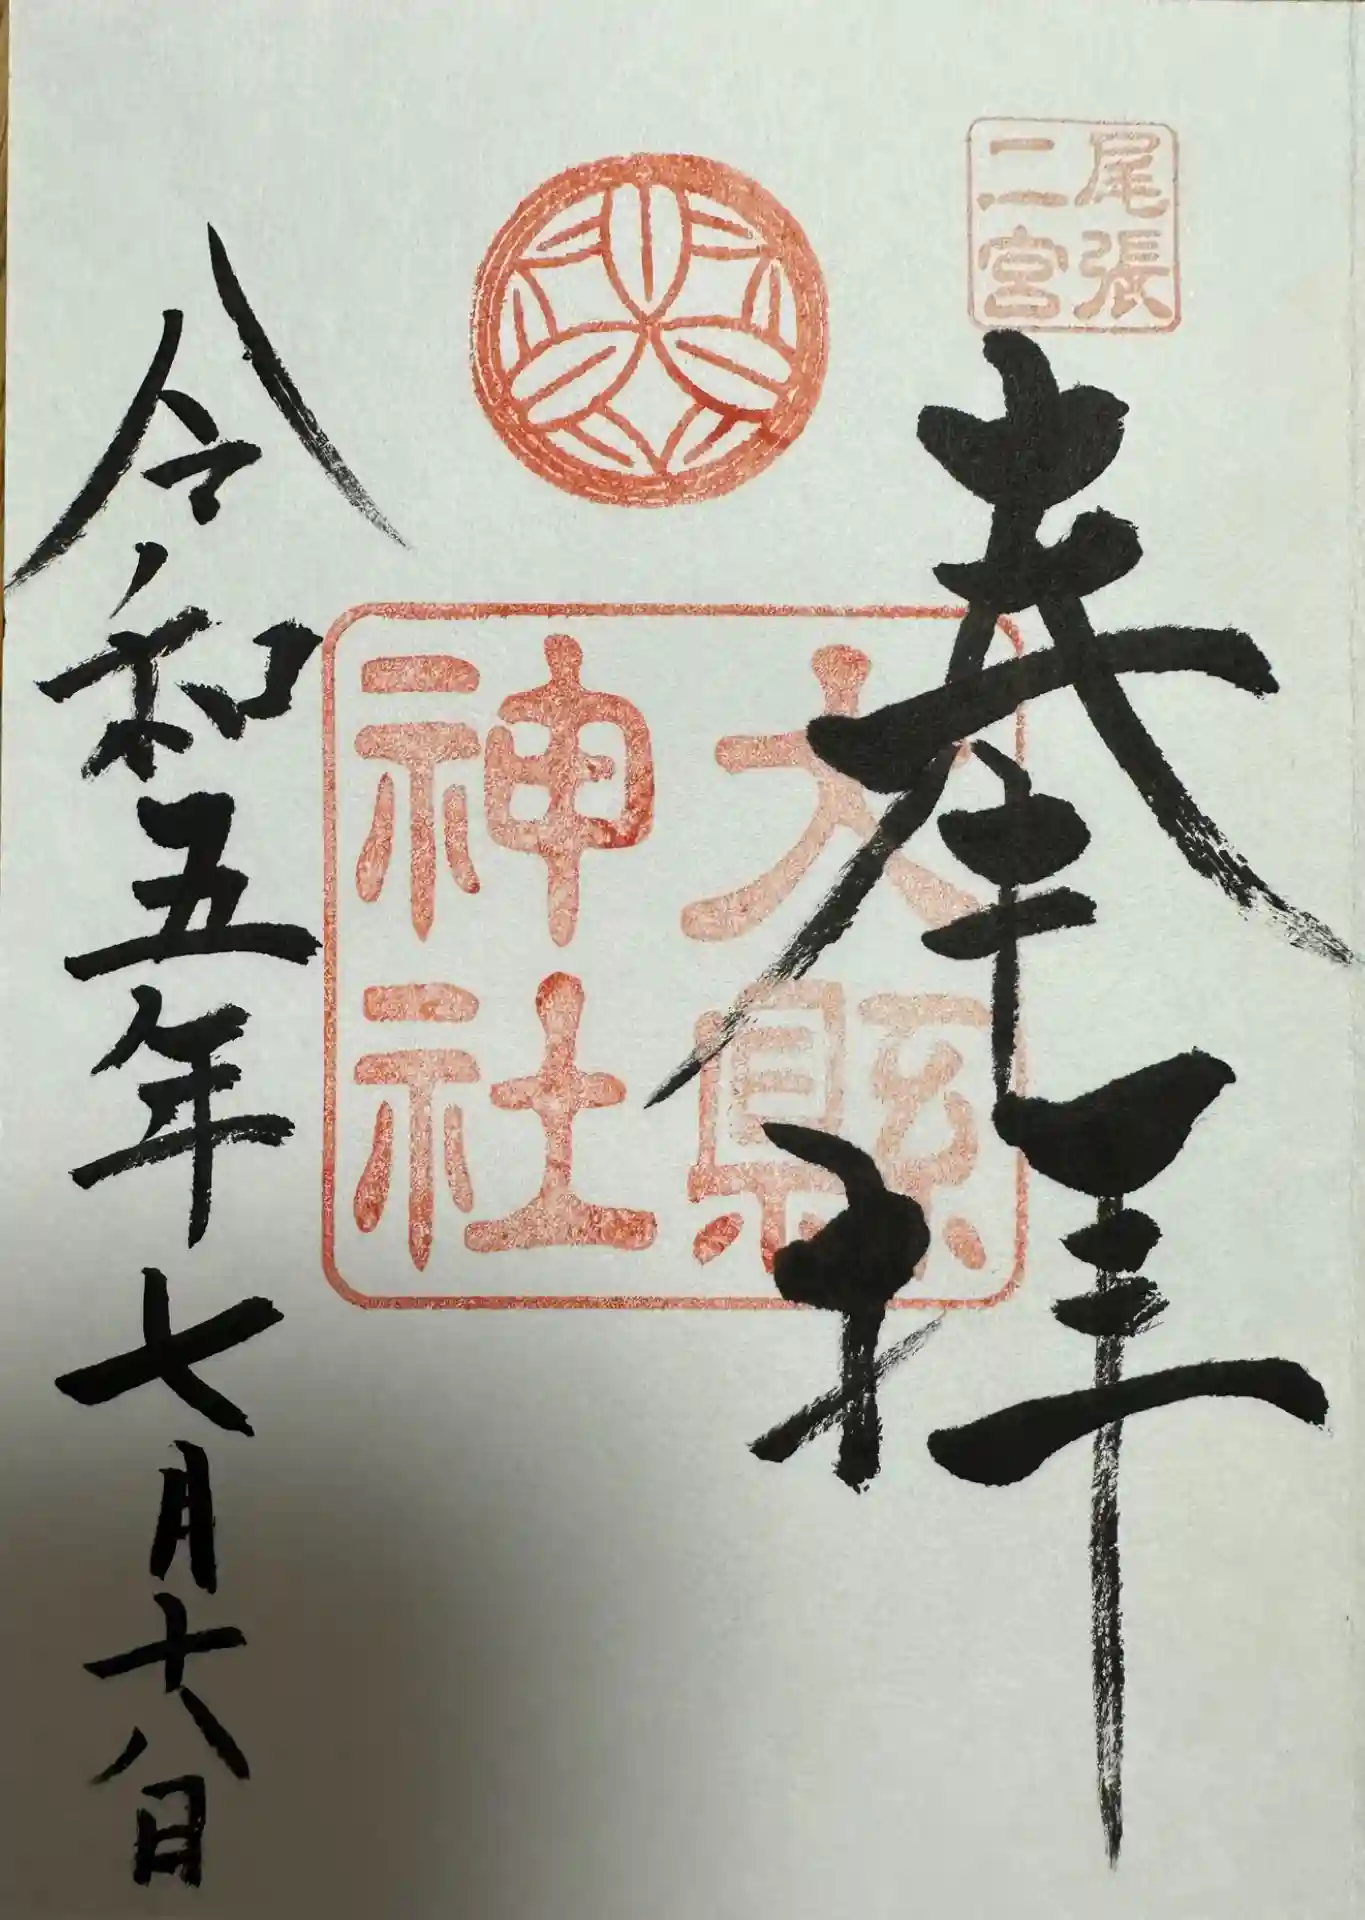 尾張
二宮
奉拝
大縣
神社
令和五年七月十八日